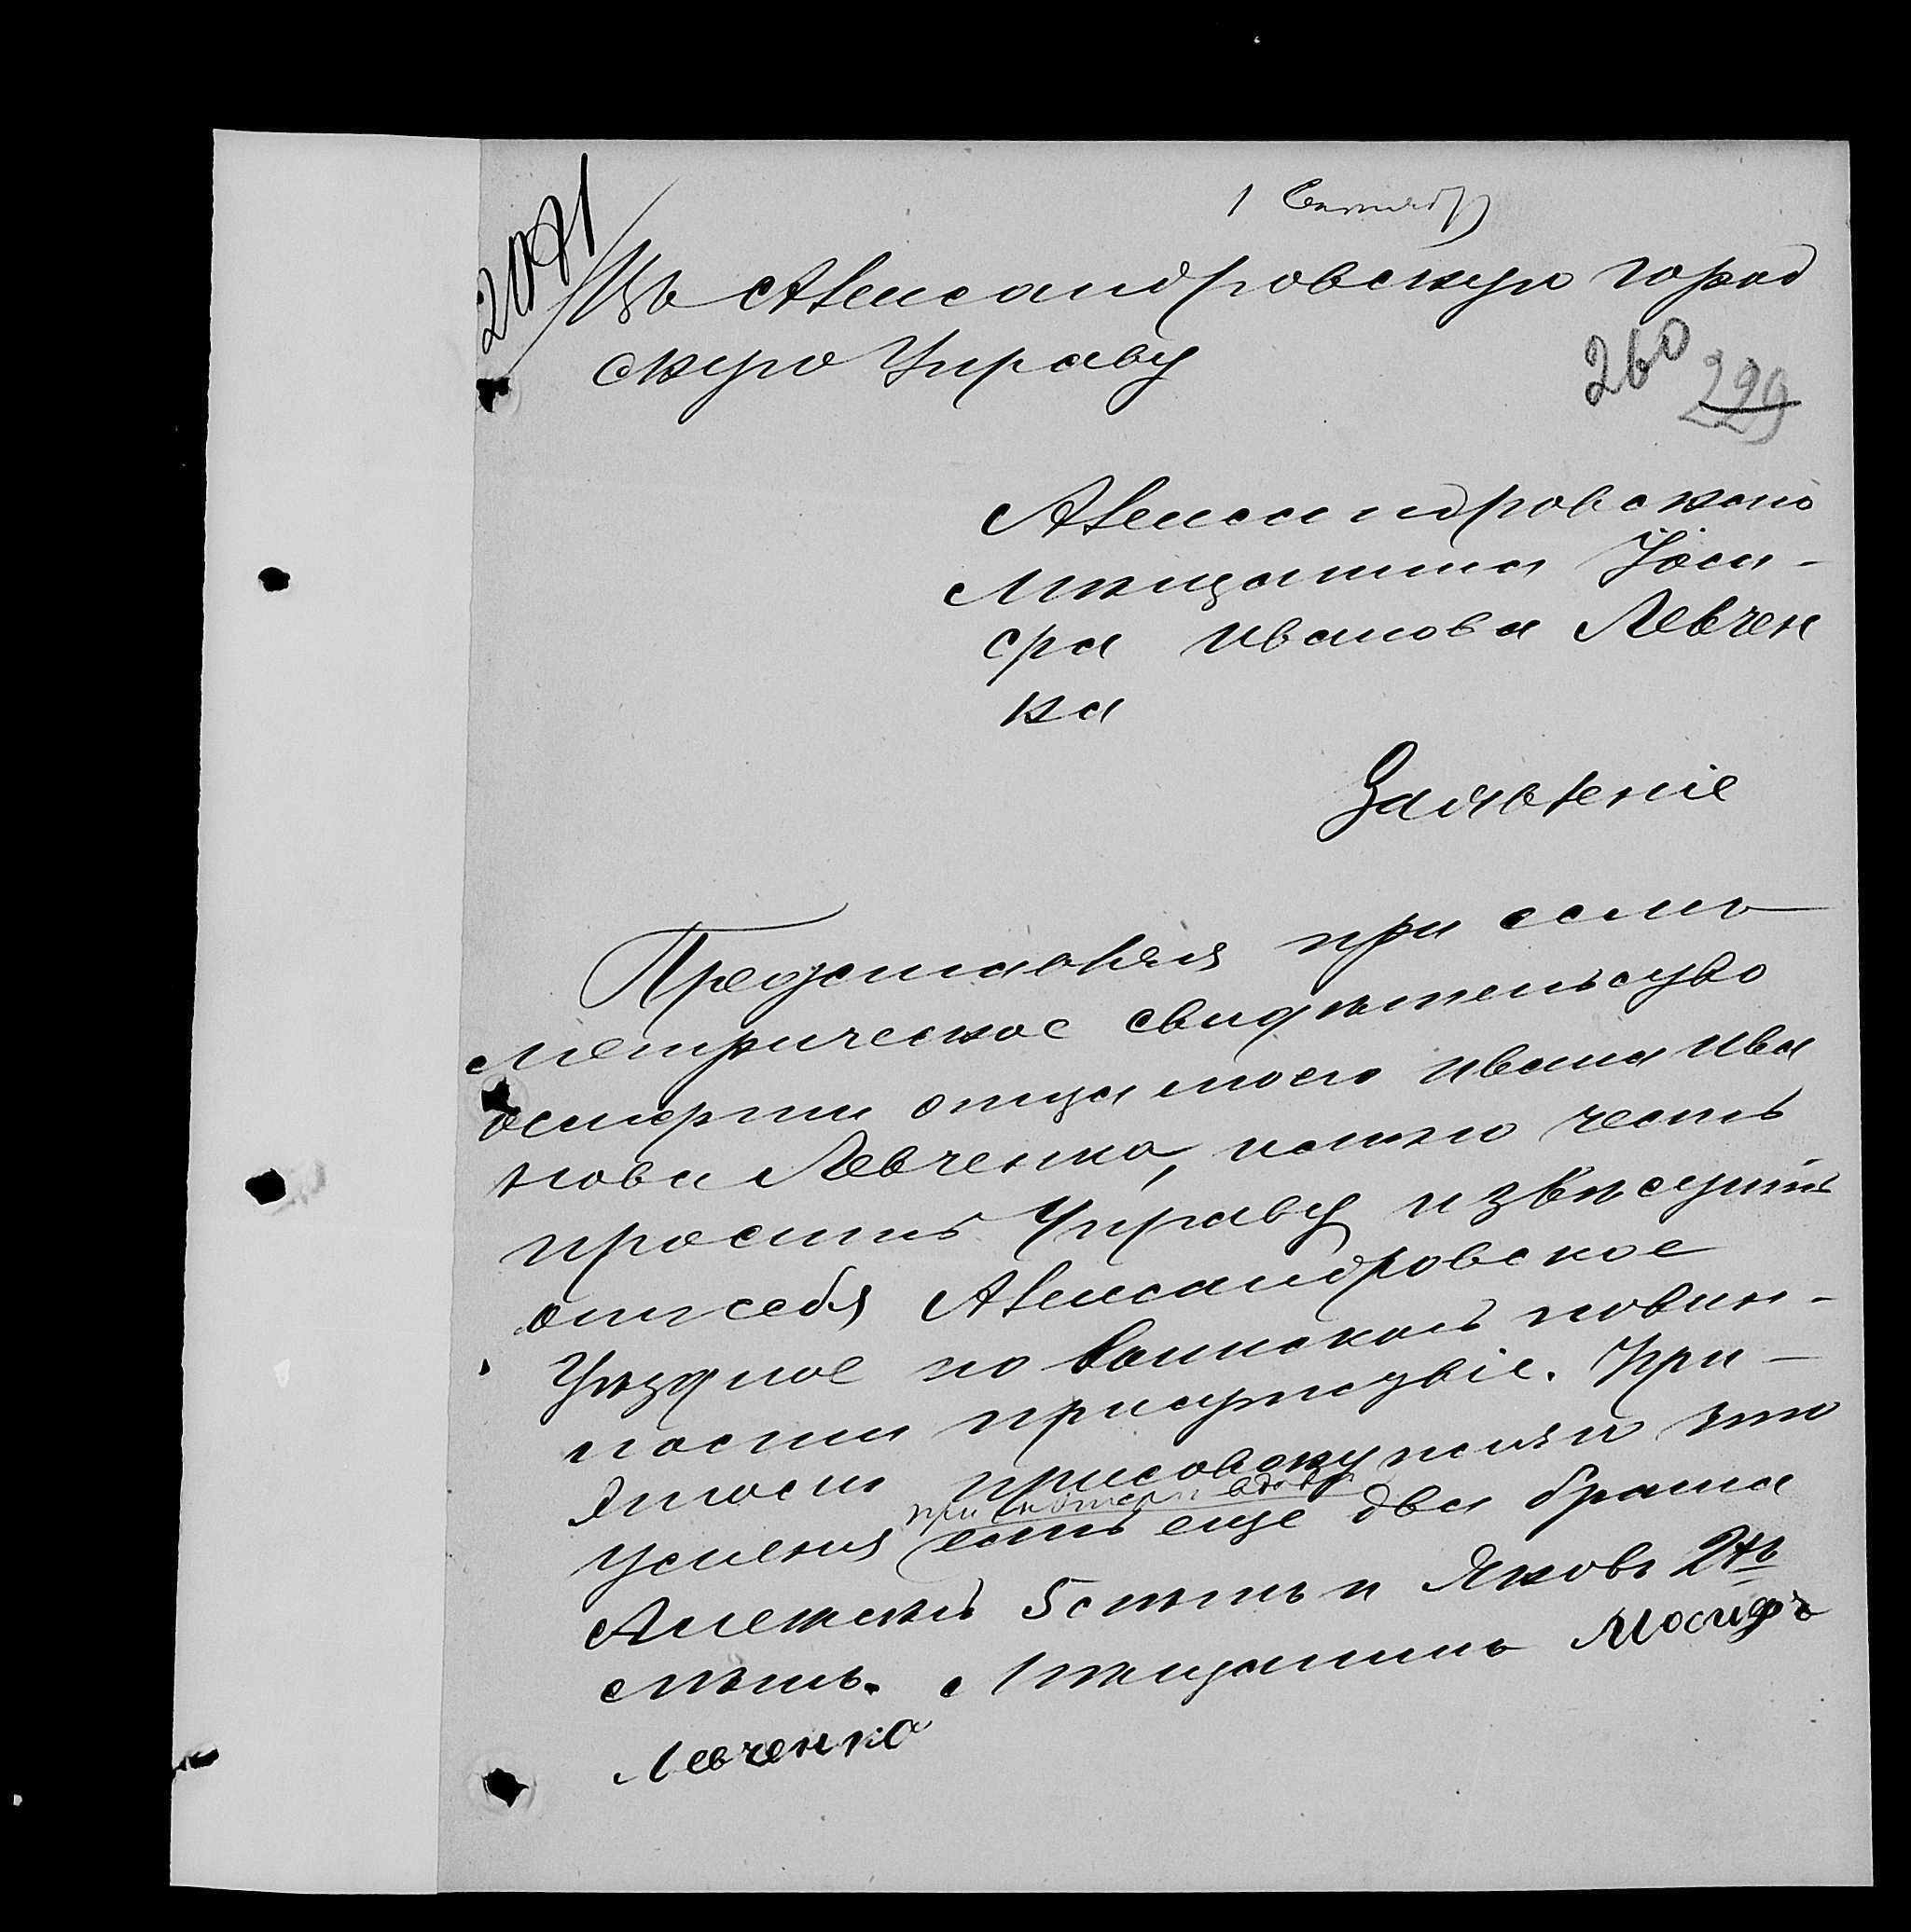 1 Сентябр
2071
Въ Александровскую город
скую Управу
260
299
Александровскаго
мѣщанина Іоси-
фа Иванова Левчен
ка
Заявленіе
Представляя при семъ
метрическое свидѣтельство
осмерти отца моего Ивана Ива
нова Левченко, имѣю честь
просить Управу извѣстить
отъ себя Александровское
Уѣздное по воинской повин-
ности присутствіе. При
этомъ присовокупляю что
при матери вдовѣ
уменя есть еще два брата
Алексѣй 5 лѣтъ и Яковъ 2хъ
лѣтъ. Мѣщанинъ Иосифъ
Левченко